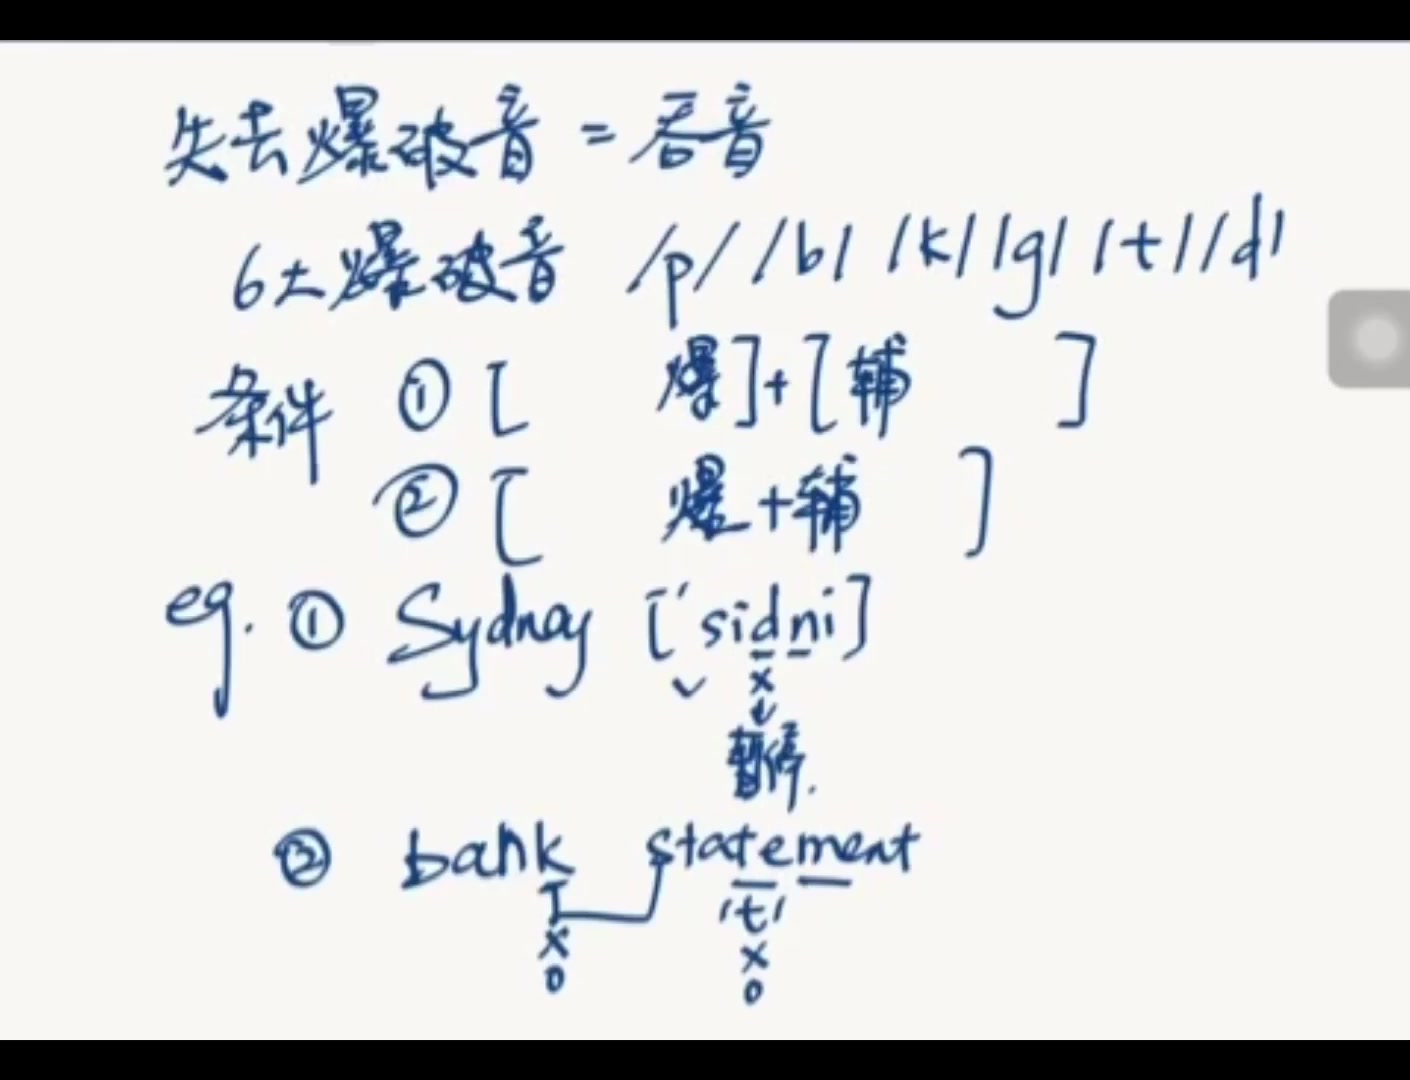 失去爆破音 = 吞音
6大爆破音 /p/ /b/ /k/ /g/ /t/ /d/
条件 ① [ 爆]+[辅 ]
② [ 爆+辅 ]
eg. ① Sydney ['sidni]
✓ x
↓
暂停.
② bank statement
/t/
x x
0 0